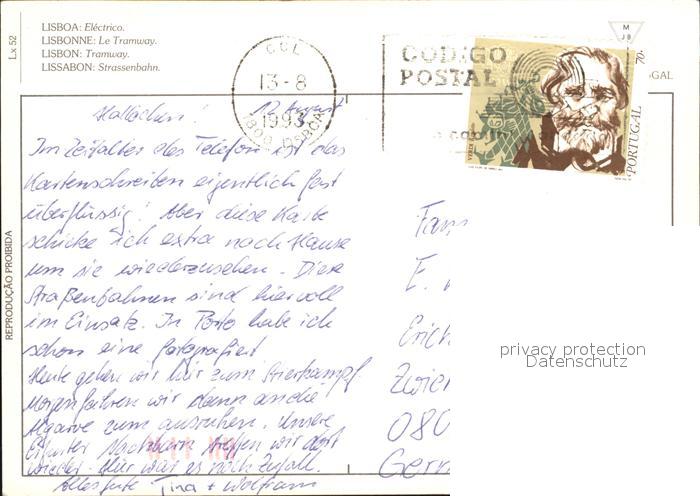 LISBOA: Eléctrico.
LISBONNE: Le Tramway.
LISBON: Tramway.
LISSABON: Strassenbahn.
Lx 52
REPRODUÇÃO PROIBIDA
13-8
1993
1900 LISBOA
CÓDIGO
POSTAL
M
J8
70.
PORTUGAL
GAL
Hallöchen!
12. August
Im Zeitalter des Telefon ist das
Kartenschreiben eigentlich fast
überflüssig! Aber diese Karte
schicke ich extra nach Hause
um sie wiederzusehen. Diese
Straßenbahnen sind hier voll
im Einsatz. In Porto habe ich
schon eine fotografiert
Heute gehen wir hier zum Stierkampf.
Morgen fahren wir dann an die
Algarve zum ausruhen. Unsere
Erfurter Nachbarn treffen wir dort
wieder. Hier war es noch Zufall.
Alles gute Tina + Wolfram
Fam
E.
Erich
Zwic
080
Germ
privacy protection
Datenschutz